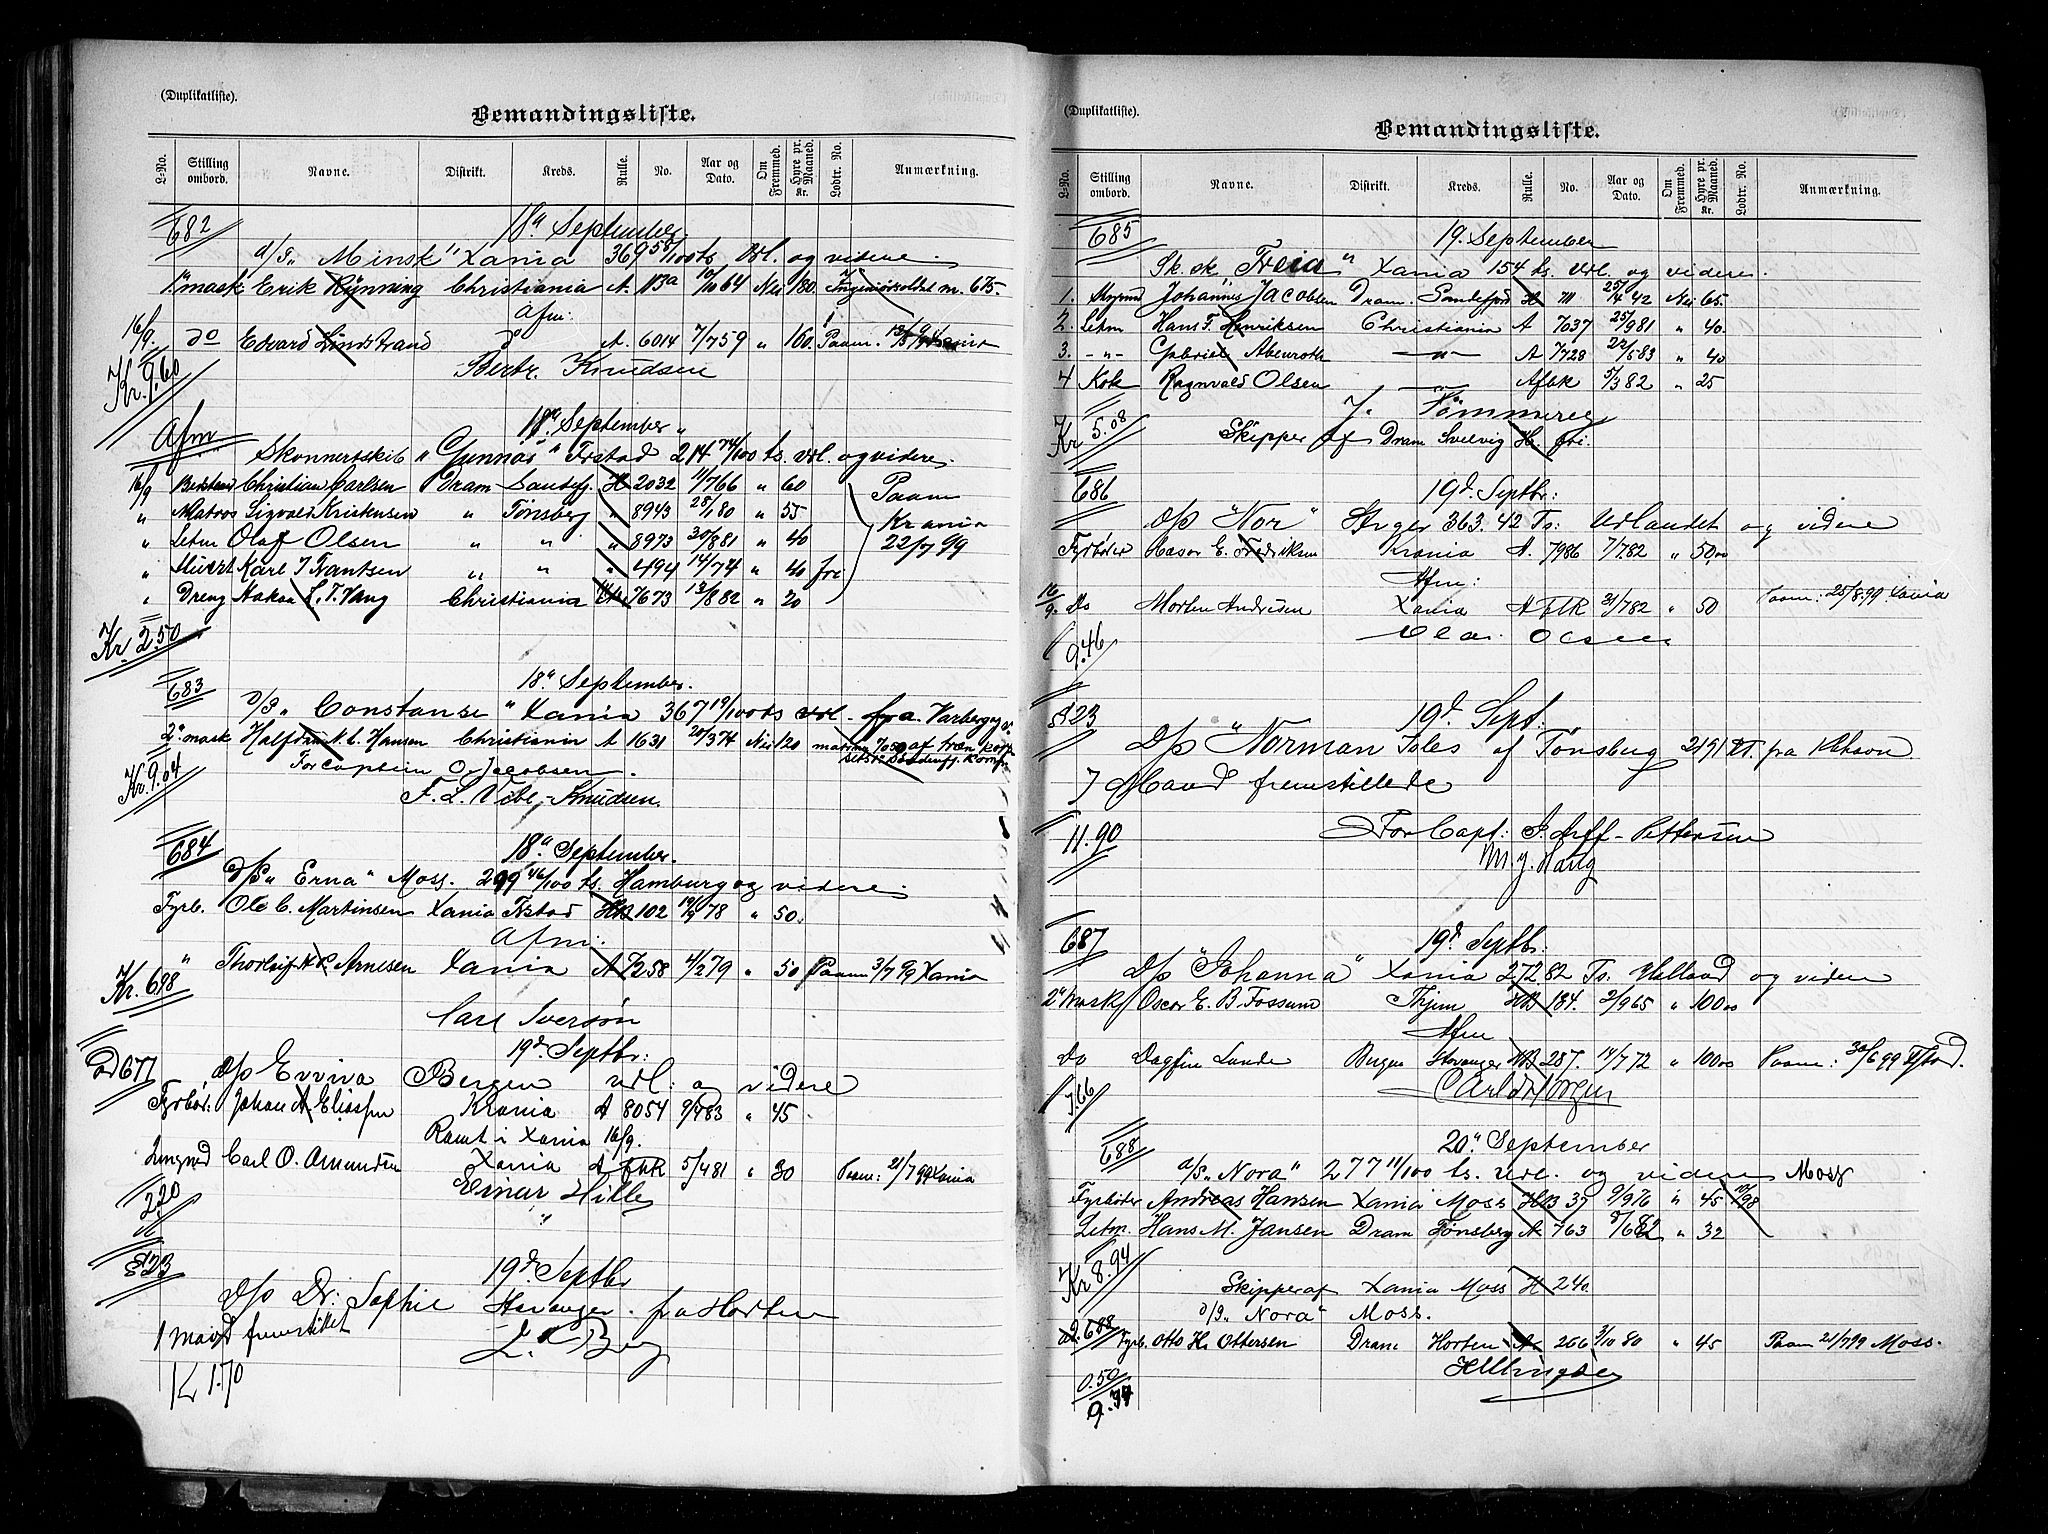 (Duplikatliste).
Bemandingsliste.
L-No. Stilling ombord. Navne. Distrikt. Kreds. Rulle. No. Aar og Dato. Om Fremmed. Hyre pr. Maaned. Kr. Lodtr. No. Anmærkning.
682 18de September
D/S „Minsk" Xania 369 58/100 ts Udl. og videre.
1ste mask. Erik Hÿnning Christiania A. 113a 10/10 64 Nei 180. Ingeniørsoldat m. 675.
Afm:
16/9. do Edvard Lindstrand A. 6014 7/7 59 „ 160. Paam.
Kr. 9.60
Bertr. Knudsen
Afm 18de September
Skonnertskib „Gunnas" Frstad 214 74/100 ts. udl. og videre.
16/9 Bedstmd Christian Carlsen Dram Sandefj. H 2032 11/7 66 „ 60 Paam
„ Matros Sigvald Kristensen „ Tønsberg „ 8943 28/1 80 „ 55 Krania
„ Letm Olaf Olsen „ „ „ 8973 30/8 81 „ 40 22/7 99
„ Stuert Karl J Frantsen „ „ „ 494 14/1 74 „ 40 fri
„ Dreng Hakon L. T. Vang Christiania 7673 13/8 82 „ 20
Kr. 2.50
683 18de September.
D/S „Constanse" Xania 367 19/100 ts udl. fra Varberg og v.
2den mask Halfdan N. C. Hansen Christiania A 1631 20/3 74 Nei 120
For captein O. Jacobsen.
Kr. 9.04
F. L. Vibe-Knudsen
684 18de September.
D/S „Erna" Moss. 299 46/100 ts. Hamburg og videre.
Fyrb. Ole C. Martinsen Xania Frstad HB 102 78 „ 50.
Afm:
„ Thorleif Arnesen Xania A 7258 4/2 79 „ 50 Paam 3/7 99 Xania
Kr. 6.88
Carl Iversøn
19d. Septbr:
ad 677 D/S Evviva Bergen udl: og videre
Fyrbød: Johan A. Eliassen Krania A 8054 83 „ 45
Rømt i Xania 16/9.
Lungmd Carl O. Amundsen Xania A FBK 5/4 81 „ 30 Paam: 21/7 99 Xania
Einar Hille
2.20
§ 23
19d. Septbr
D/S Dr: Sophie Stavanger. fra Horten
1 Mand fremstillet
L. Berg
Kr 1.70
(Duplikatliste).
Bemandingsliste.
L-No. Stilling ombord. Navne. Distrikt. Kreds. Rulle. No. Aar og Dato. Om Fremmed. Hyre pr. Maaned. Kr. Lodtr. No. Anmærkning.
685 19. September
Sk. sk. Freia" Xania 154 ts. Udl. og videre.
1. Styrmd Johannes Jacobsen Dram. Sandefjord H 111 25/4 42 Nei 65.
2. Letm Hans F. Henriksen Christiania A 7037 25/9 81 „ 40.
3. -„- Gabriel Abenroth -„- A 7728 22/5 83 „ 40
4 Kok Ragnvald Olsen Afbk 5/3 82 „ 25
Kr 5.08
J. Tömmereg
Skipper af Dram Svelvig H. fri.
686 19d. Septbr:
D/S "Nor" Stvger 363.42 Ts: Udlandet og videre
Fyrbøder E. Fredriksen Krania A. 7986 7/7 82 „ 50,00
Afm:
16/9. Do Morten Andresen Xania A FBK 31/7 82 „ 50 Paam: 25/8.99 Xania
Olsen
9.46
§ 23 19d. Sept:
D/S "Norman Isles af Tønsberg 2191 T. fra
7 Mand fremstillede
11.90
For Capt: J. Arff-Pettersen
M. J. Haug
687 19d. Septbr:
D/S "Johanna" Xania 272 82 Ts. Halland og videre
2den Mask Oscar E. B. Fossum Thjem HB 184. 2/9 65 „ 100 00
Afm
Do Dagfin Lunde Bergen Stavanger HB 287. 14/7 72 „ 100 00 Paam: 30/6 99 Frstad.
7.66
688 20de September
D/S „Nora" 277 11/100 ts. udl. og videre Moss
Fyrbøder Andreas Hansen Xania Moss HB 37 9/9 76 „ 45
Letm. Hans M. Jansen Dram Tønsberg A 763 8/6 82 „ 32
Kr 8.94
Skipper af Xania Moss H 240.
D/S „Nora" Moss.
ad. 688 Fyrb. Otto H. Ottersen Dram Horten A 266 3/10 80 „ 45 Paam 21/7 99 Moss.
0.50
9.34